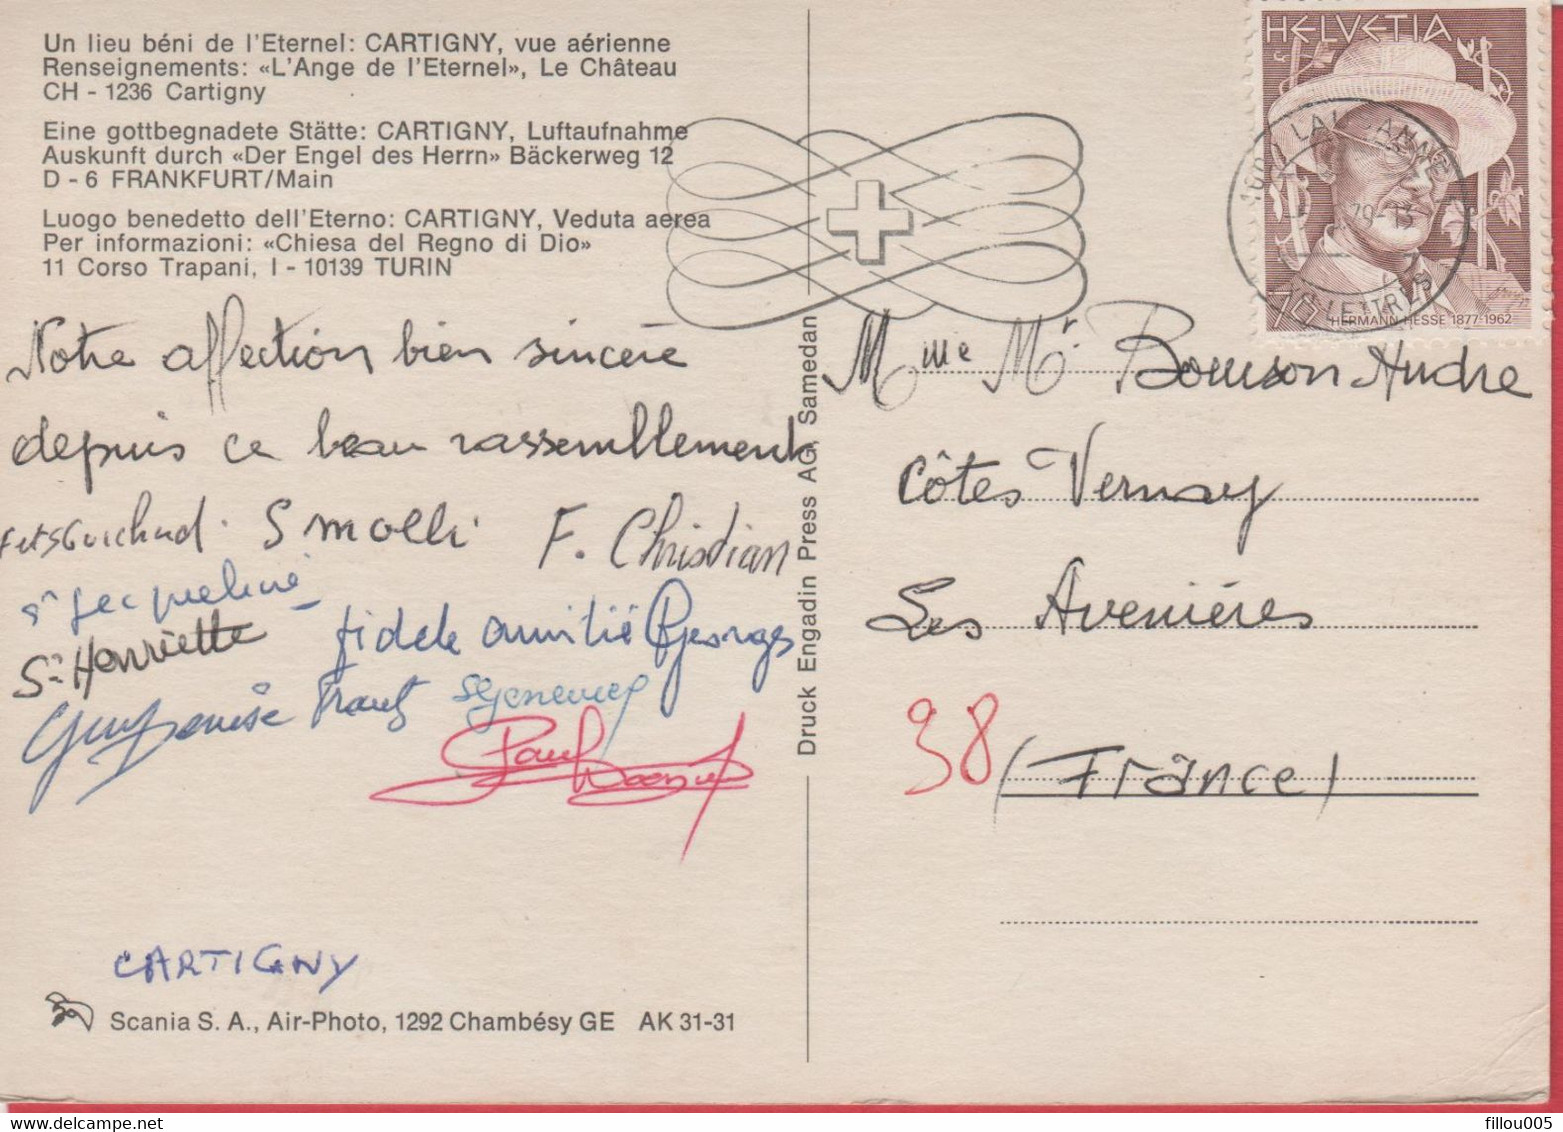 Un lieu béni de l'Eternel: CARTIGNY, vue aérienne
Renseignements: «L'Ange de l'Eternel», Le Château
CH - 1236 Cartigny
Eine gottbegnadete Stätte: CARTIGNY, Luftaufnahme
Auskunft durch «Der Engel des Herrn» Bäckerweg 12
D - 6 FRANKFURT/Main
Luogo benedetto dell'Eterno: CARTIGNY, Veduta aerea
Per informazioni: «Chiesa del Regno di Dio»
11 Corso Trapani, I - 10139 TURIN
Notre affection bien sincère
depuis ce beau rassemblement
F. Christian
Jacqueline
Sr Henriette fidèle amitié Georges
Denise
Paul
CARTIGNY
Scania S. A., Air-Photo, 1292 Chambésy GE AK 31-31
Druck Engadin Press AG, Samedan
HELVETIA
70
HERMANN HESSE 1877-1962
LAUSANNE
LETTRES
Mme Mr Bouuson Andre
Côtes Vernay
Les Avenières
38 (France)
fillou005